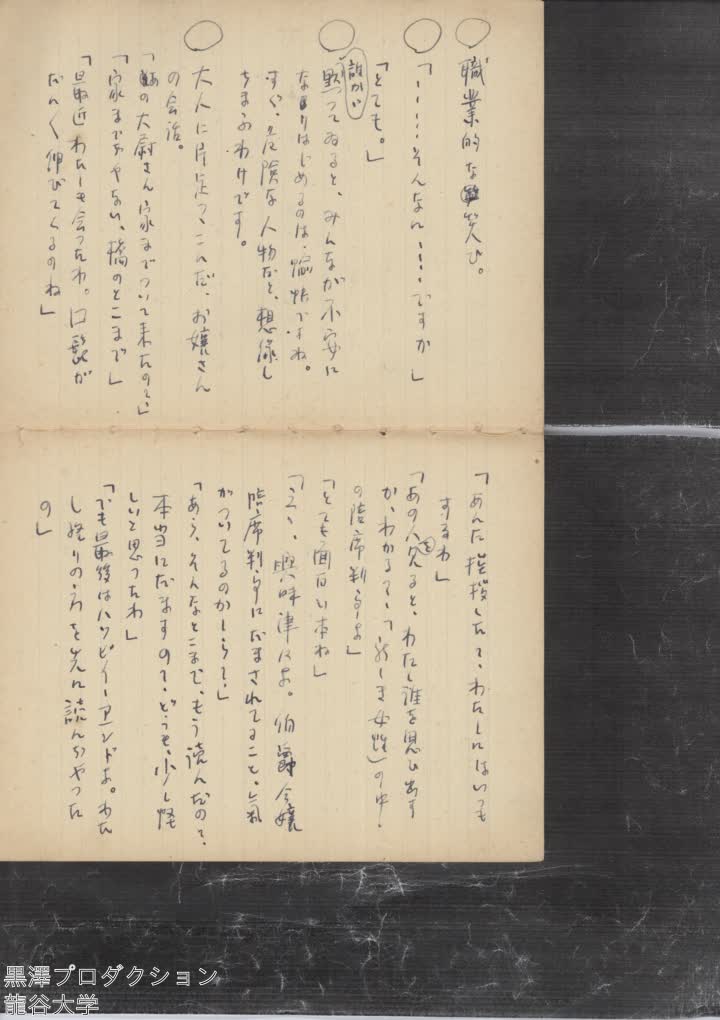 職業的な笑ひ。
「‥‥‥そんなに‥‥‥ですか」
「とても。」
誰かが
黙ってゐると、みんなが不安に
なりはじめるのは、愉快ですね。
すぐ、危険な人物だと、想像し
ちまふわけです。
の会話。
「あの大尉さん家までついて来たの?」
「家までぢやない、橋のとこまで」
「最近わたしも会ったわ。口髭が
だんく伸びてくるのね」
「あんた挨拶した?、わたしにはいつも
するわ」
「あの人を見ると、わたし誰を思ひ出す
か、わかる?
の陪席判事よ」
「とても面白い本ね」
興味津々よ。伯爵令嬢
陪席判事にだまされてること、気
がついてるのかしら?」
「あら、そんなとこまで、もう読んだの?、
本当にだますの?、どうも、少し怪
しいと思ったわ」
「でも最後はハッピイーアンドよ。わた
し終りの方を先に読んぢやった
の」
黒澤プロダクション
龍谷大学